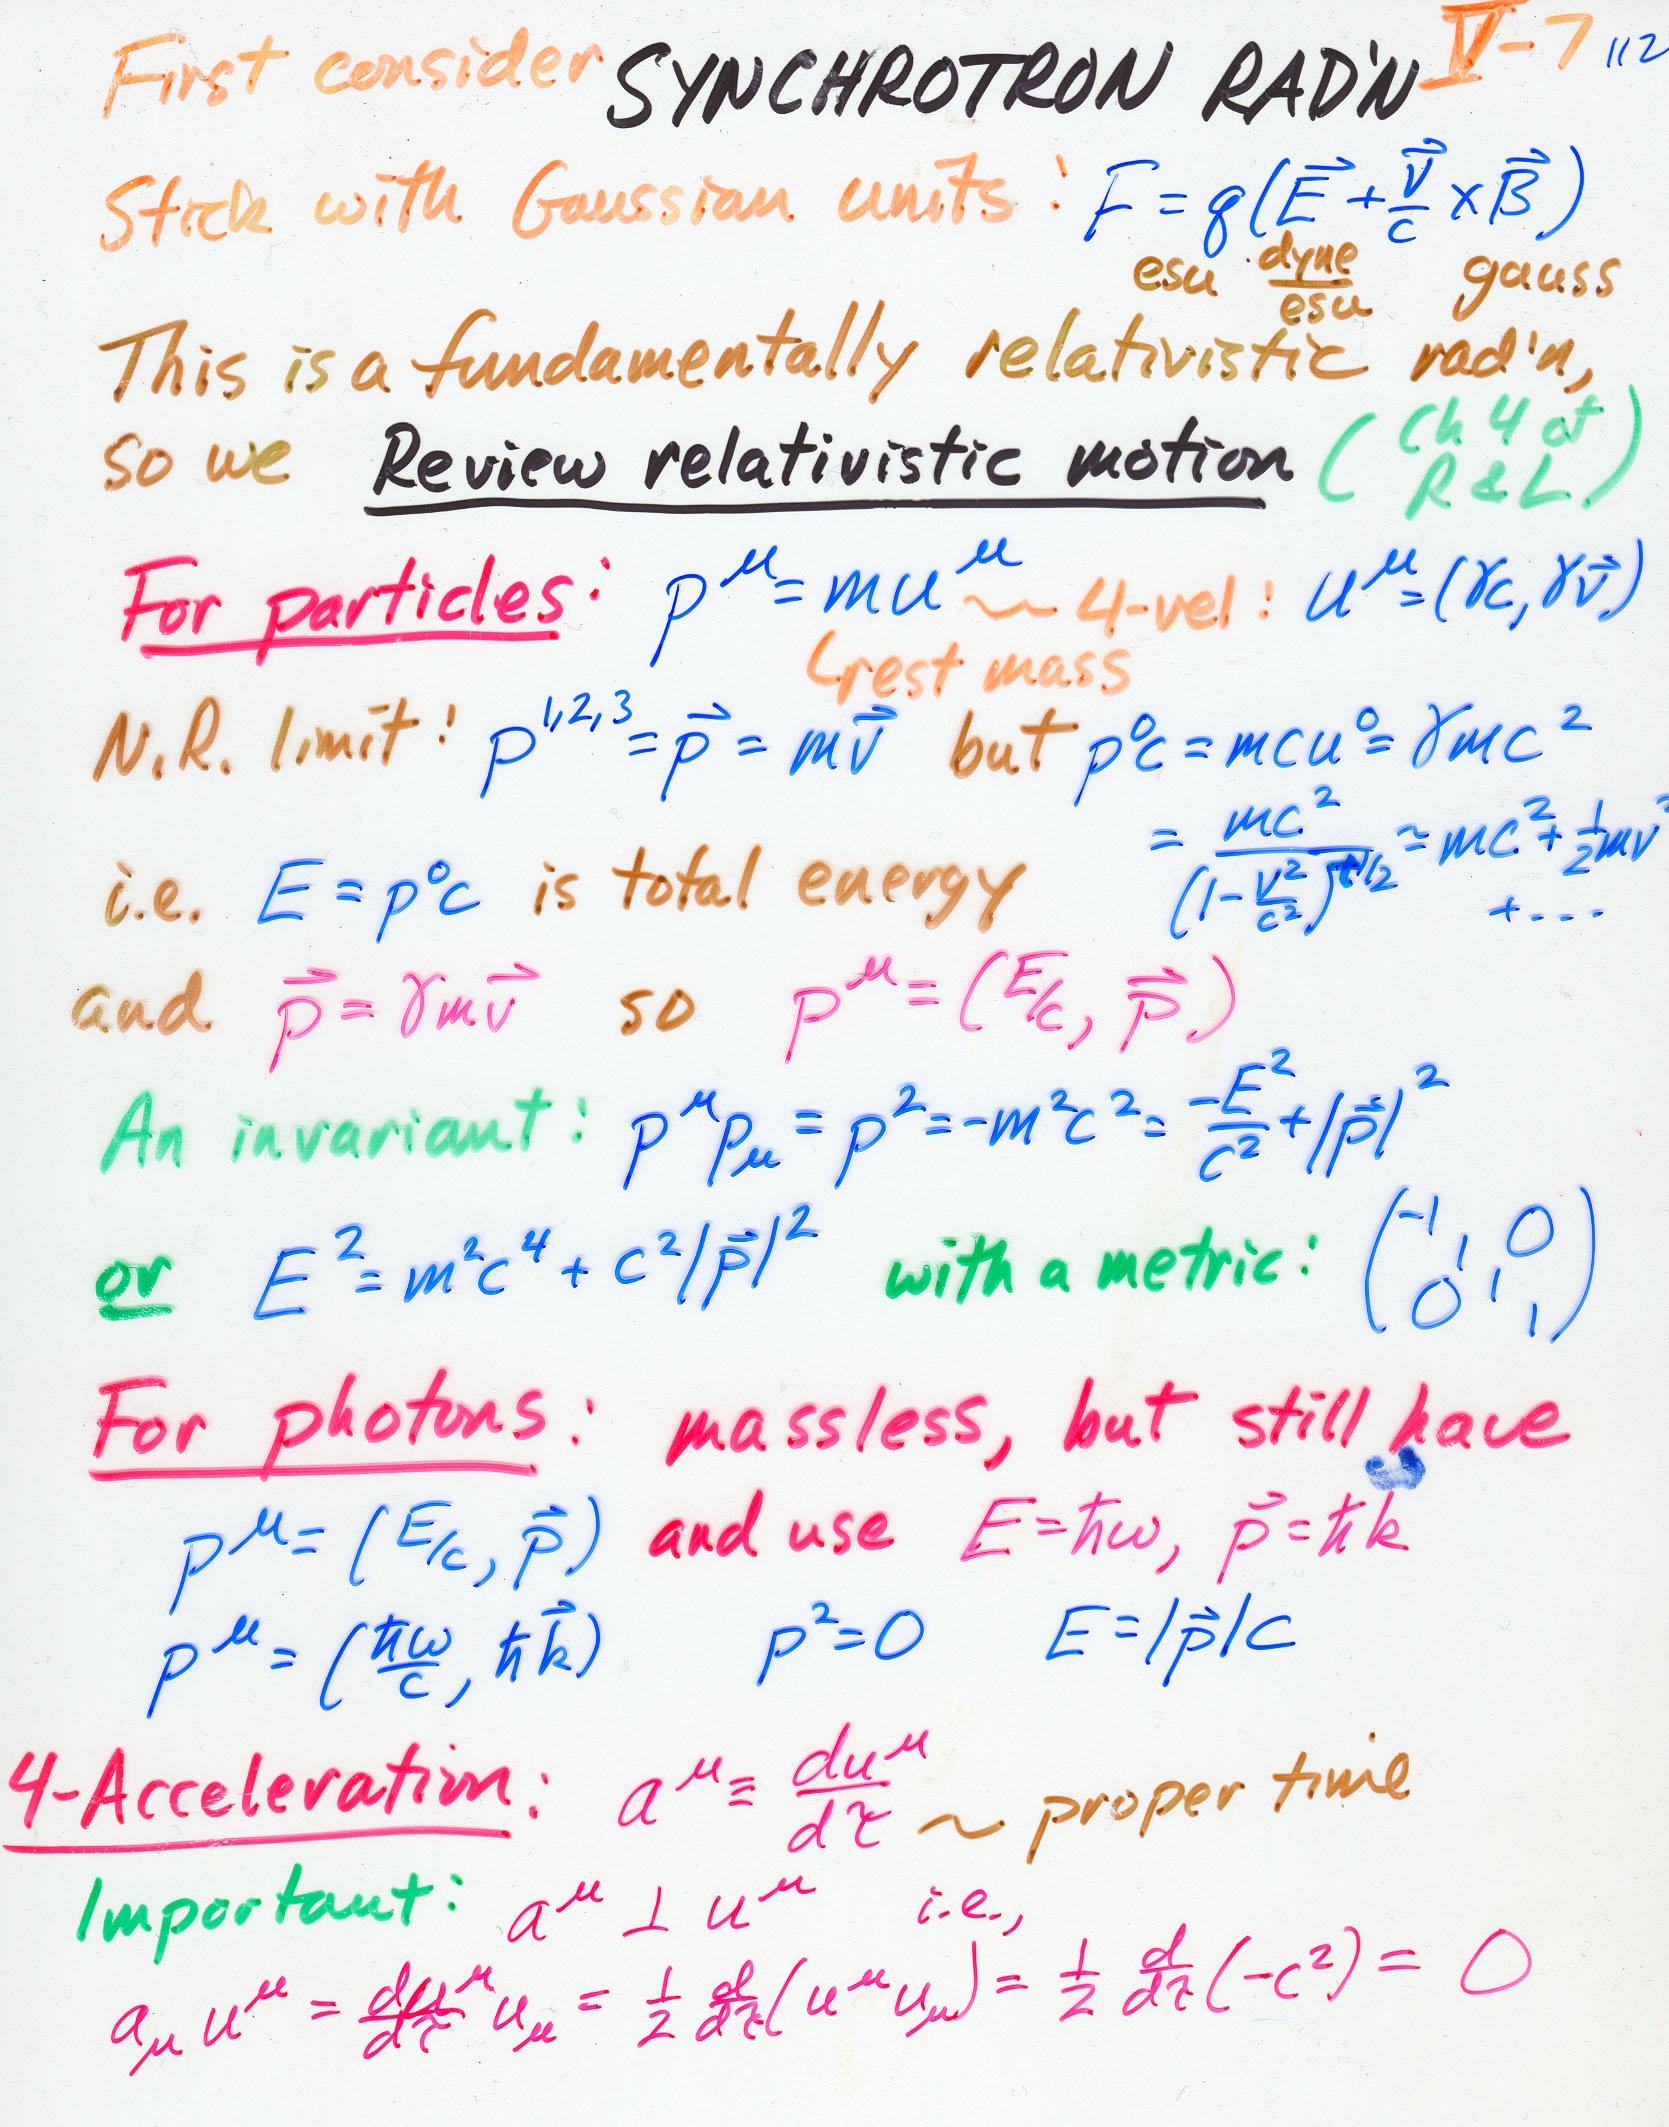 First consider SYNCHROTRON RAD'N IV-7 112
Stick with Gaussian units: F = q(E⃗ + v⃗/c × B⃗)
esu dyne/esu gauss
This is a fundamentally relativistic rad'n,
so we Review relativistic motion (Ch 4 of R & L)
For particles: p^μ = mu^μ ~ 4-vel: u^μ = (γc, γv⃗)
rest mass
N.R. limit: p^{1,2,3} = p⃗ = mv⃗ but p⁰c = mcu⁰ = γmc²
= mc²/(1 - v²/c²)^{1/2} ≈ mc² + ½mv²
i.e. E = p⁰c is total energy + ....
and p⃗ = γmv⃗ so p^μ = (E/c, p⃗)
An invariant: p^μ p_μ = p² = -m²c² = -E²/c² + |p⃗|²
or E² = m²c⁴ + c²|p⃗|² with a metric: (-1 1 0 0 1 1)
For photons: massless, but still have
p^μ = (E/c, p⃗) and use E = ħω, p⃗ = ħk
p^μ = (ħω/c, ħk⃗) p² = 0 E = |p⃗|c
4-Acceleration: a^μ ≡ du^μ/dτ ~ proper time
Important: a^μ ⊥ u^μ i.e.,
a_μ u^μ = du^μ/dτ u_μ = ½ d/dτ (u^μ u_μ) = ½ d/dτ (-c²) = 0